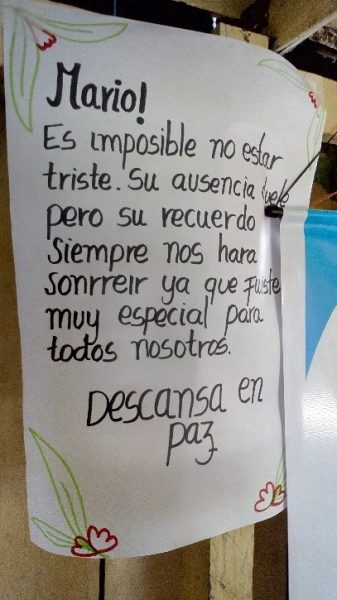 Mario!
Es imposible no estar
triste. Su ausencia duele
pero su recuerdo
siempre nos hara
sonrreir ya que fuiste
muy especial para
todos nosotros.
Descansa en
paz